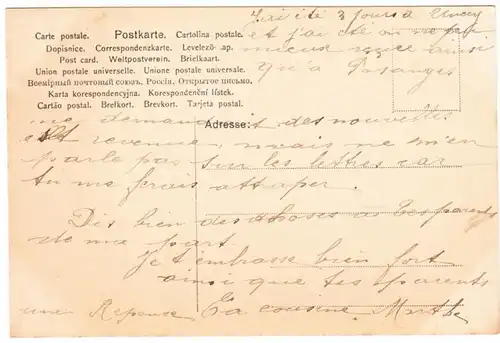 J'ai été 3 jours à
Carte postale. Postkarte. Cartolina postale.
et j'ai été on ne peut
Dopisnice. Correspondenzkarte. Levelező-lap.
mieux reçue ainsi
Post card. Weltpostverein. Brielkaart.
qu'à
Union postale universelle. Unione postale universale.
Всемірный почтовый союзъ. Россія. Открытое письмо.
Karta korespondencyjna. Korespondenční lístek.
Cartão postal. Brefkort. Brevkort. Tarjeta postal.
me demandait des nouvelles
Adresse:
est revenue, mais ne m'en
parle pas sur les lettres car
tu me ferais attraper.
Dis bien des choses à tes parents
de ma part.
Je t'embrasse bien fort
ainsi que tes parents
une Réponse Ta cousine Marthe